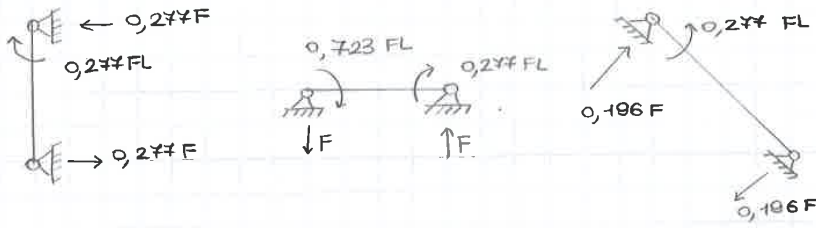 0,277F
0,277FL
0,277F
0,723 FL
0,277 FL
F
F
0,277 FL
0,196F
0,196F